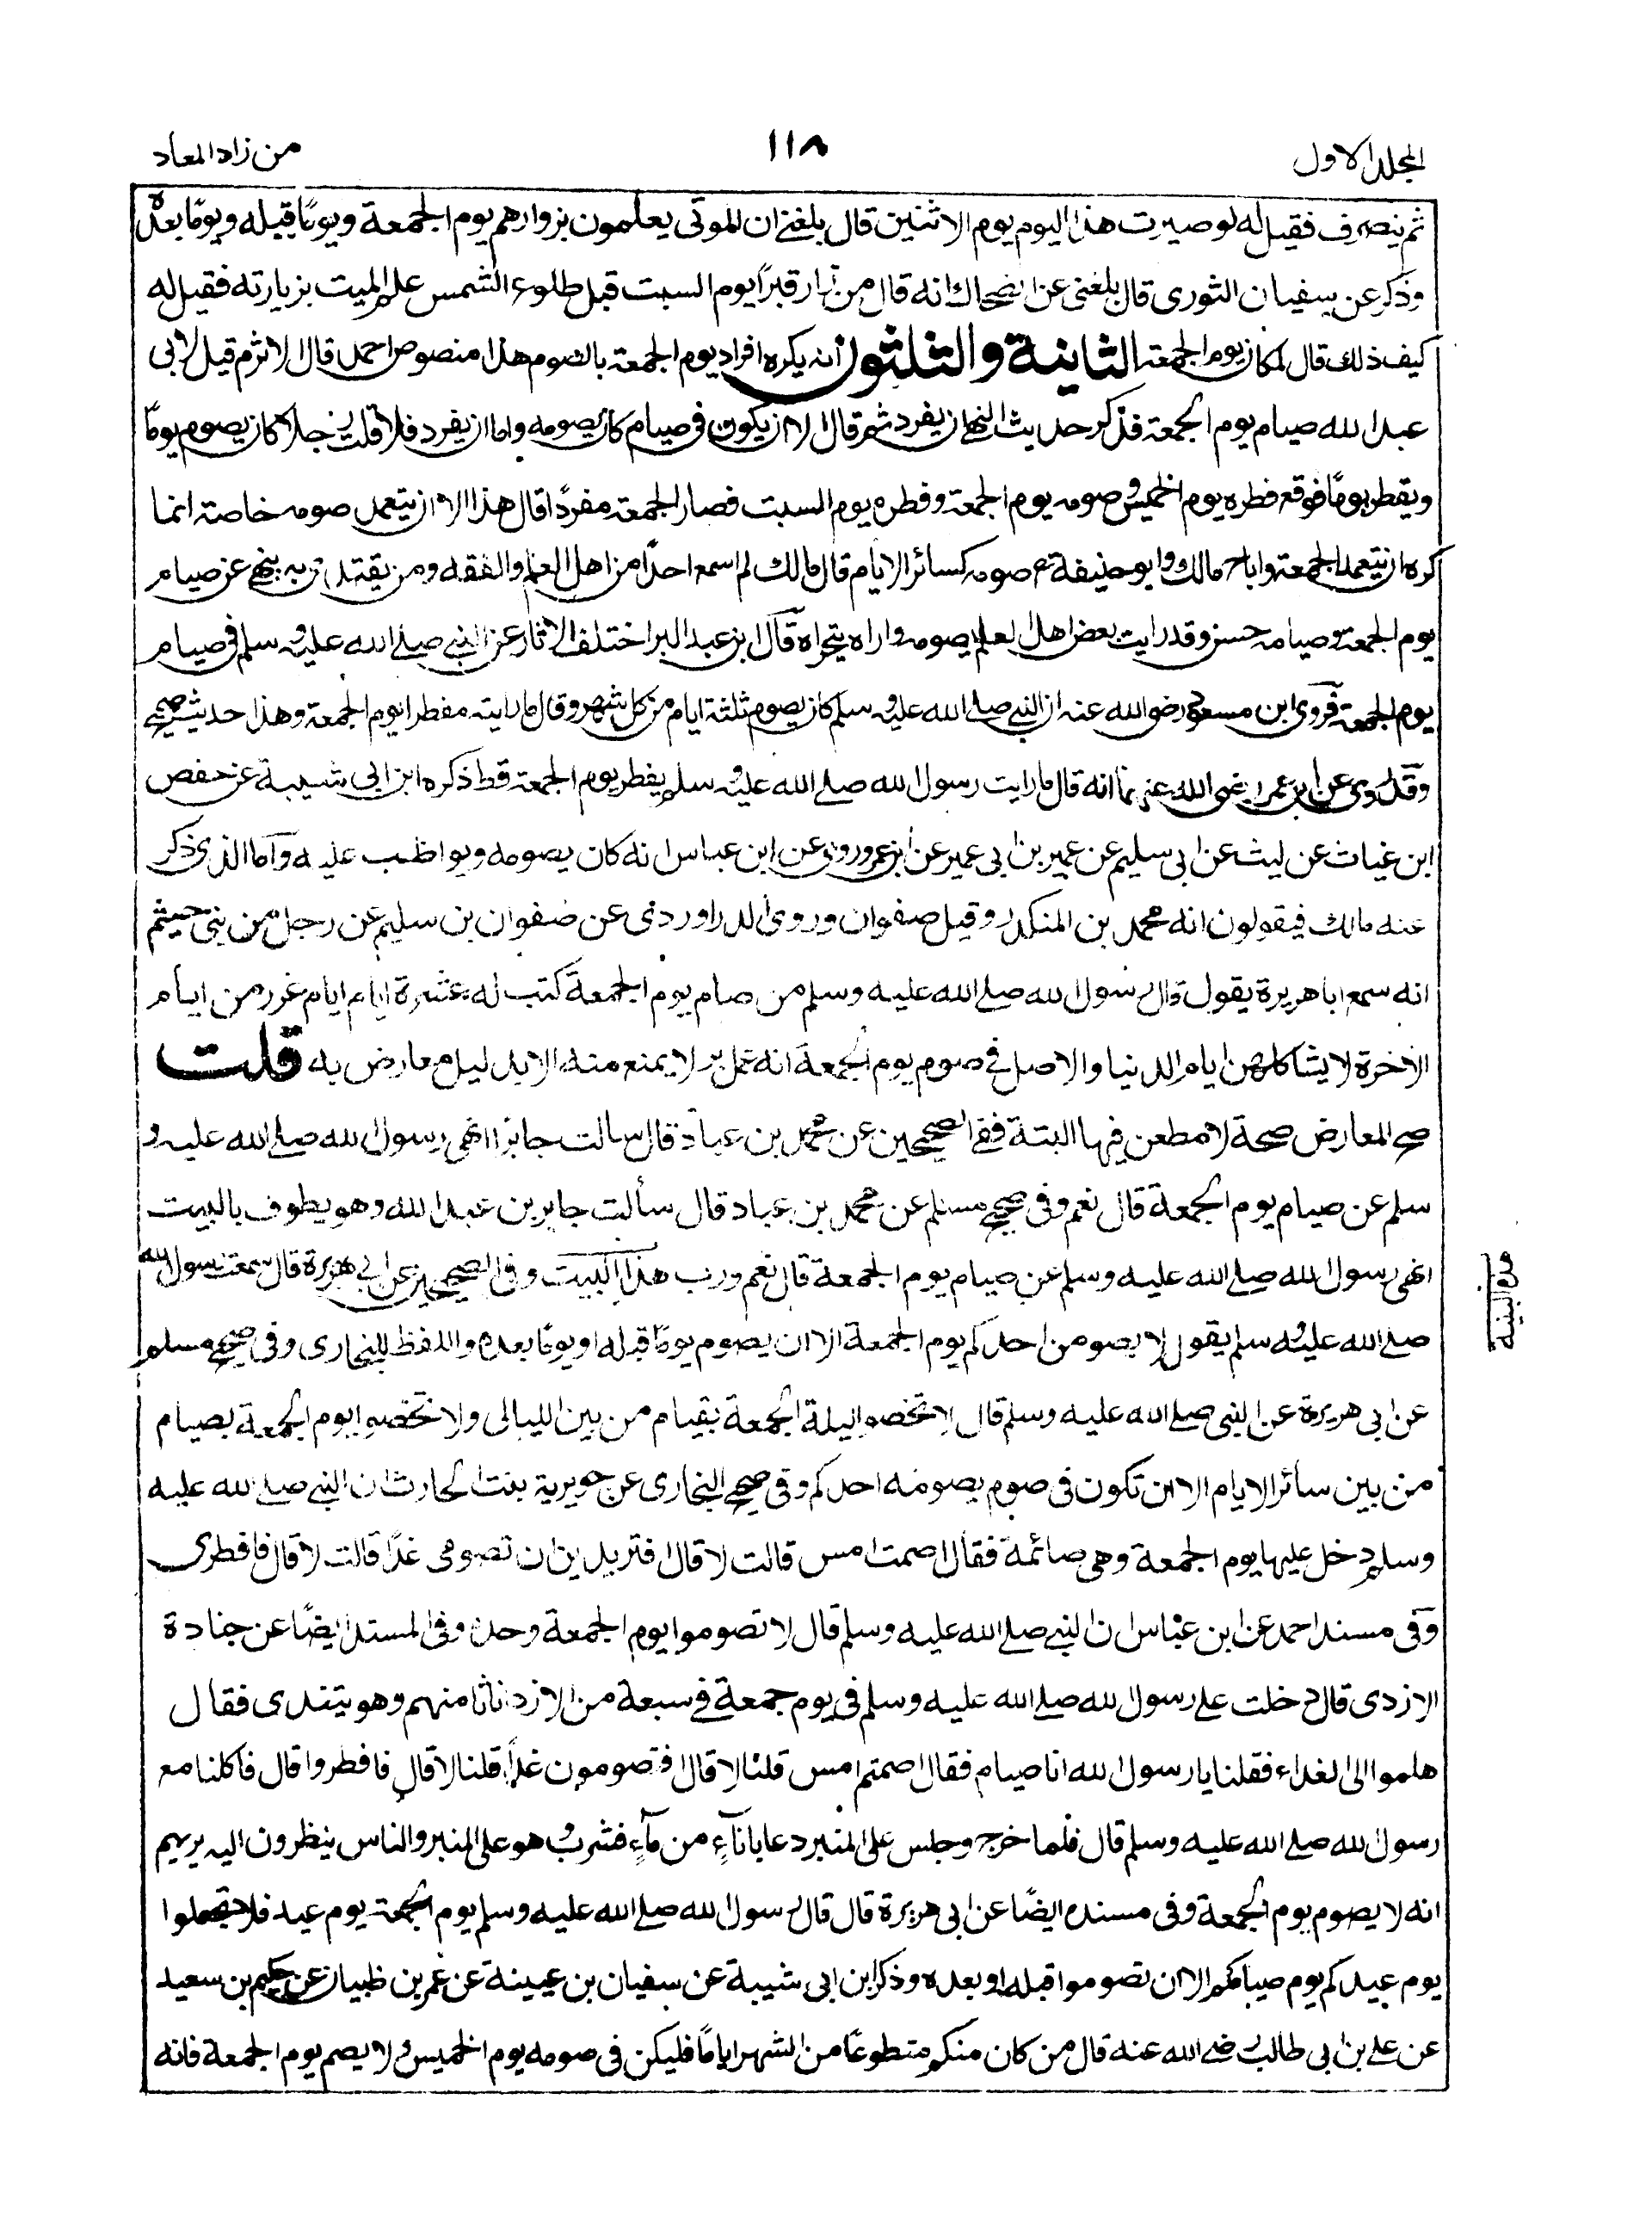 المجلد الاول
١١٨
من زاد المعاد
ثم ينصرف فقيل له لو صيرت هذا اليوم يوم الاثنين قال بلغنى ان الموتى يعلمون بزوارهم يوم الجمعة ويوما قبله ويوما بعده
وذكر عن سفيان الثورى قال بلغنى عن الضحاك انه قال من زار قبرًا يوم السبت قبل طلوع الشمس علم الميت بزيارته فقيل له
كيف ذلك قال لمكان يوم الجمعة الثانية والثلثون انه يكره افراد يوم الجمعة بالصوم هذا منصوص احمد قال الاثرم قيل لابى
عبد الله صيام يوم الجمعة فذكر حديث النهى ان يفرد ثم قال الا ان يكون فى صيام كان يصومه واما ان يفرد فلا قلت رجلا كان يصوم يومًا
ويفطر يومًا فوقع فطره يوم الخميس وصومه يوم الجمعة وفطره يوم السبت فصار الجمعة مفردًا قال هذا الا ان يتعمد صومه خاصة انما
كره ان يتعمد الجمعة واباح مالك وابو حنيفة صومه كسائر الايام قال مالك لم اسمع احدًا من اهل العلم والفقه ومن يقتدى به ينهى عن صيام
يوم الجمعة وصيامه حسن وقد رايت بعض اهل العلم يصومه واراه يتحراه قال ابن عبد البر اختلف الاثار عن النبى صلے الله عليه وسلم فى صيام
يوم الجمعة فروى ابن مسعود رضى الله عنه ان النبى صلے الله عليه وسلم كان يصوم ثلثة ايام من كل شهر وقال ما رايته مفطرا يوم الجمعة وهذا حديث صحيح
وقد روى عن ابن عمر رضى الله عنهما انه قال ما رايت رسول الله صلے الله عليه وسلم يفطر يوم الجمعة قط ذكره ابن ابى شيبة عن حفص
ابن غياث عن ليث عن ابى سليم عن عمير بن ابى عمير عن ابن عمر وروى عن ابن عباس انه كان يصومه ويواظب عليه واما الذى ذكر
عنه مالك فيقولون انه محمد بن المنكدر وقيل صفوان وروى الدراوردى عن صفوان بن سليم عن رجل من بنى جيثم
انه سمع ابا هريرة يقول قال رسول الله صلے الله عليه وسلم من صام يوم الجمعة كتب له عشرة ايام ايام غرر من ايام
الاخرة لا يشاكلهن ايام الدنيا والاصل فى صوم يوم الجمعة انه عمل بر لا يمنع منه الا بدليل معارض به قلت
صح المعارض صحة لا مطعن فيها البتة ففى الصحيحين عن محمد بن عباد قال سالت جابرا انهى رسول الله صلے الله عليه و
سلم عن صيام يوم الجمعة قال نعم وفى صحيح مسلم عن محمد بن عباد قال سألت جابر بن عبد الله وهو يطوف بالبيت
انهى رسول الله صلے الله عليه وسلم عن صيام يوم الجمعة قال نعم ورب هذا البيت وفى الصحيحين عن ابى هريرة قال سمعت رسول الله
صلے الله عليه وسلم يقول لا يصومن احدكم يوم الجمعة الا ان يصوم يومًا قبله او يومًا بعده واللفظ للبخارى وفى صحيح مسلم
عن ابى هريرة عن النبى صلے الله عليه وسلم قال لا تخصوا ليلة الجمعة بقيام من بين الليالى ولا تخصوا يوم الجمعة بصيام
من بين سائر الايام الا ان تكون فى صوم يصومه احدكم وفى صحيح البخارى عن جويرية بنت الحارث ان النبى صلے الله عليه
وسلم دخل عليها يوم الجمعة وهى صائمة فقال اصمت امس قالت لا قال افتريدين ان تصومى غدًا قالت لا قال فافطرى
وفى مسند احمد عن ابن عباس ان النبى صلے الله عليه وسلم قال لا تصوموا يوم الجمعة وحده وفى المسند ايضًا عن جنادة
الازدى قال دخلت على رسول الله صلے الله عليه وسلم فى يوم جمعة فى سبعة من الازد انا ثامنهم وهو يتغدى فقال
هلموا الى الغداء فقلنا يا رسول الله انا صيام فقال اصمتم امس قلنا لا قال افتصومون غدًا قلنا لا قال فافطروا قال فاكلنا مع
رسول الله صلے الله عليه وسلم قال فلما خرج وجلس على المنبر دعا باناء من ماء فشرب وهو على المنبر والناس ينظرون اليه يريهم
انه لا يصوم يوم الجمعة وفى مسنده ايضًا عن ابى هريرة قال قال رسول الله صلے الله عليه وسلم يوم الجمعة يوم عيد فلا تجعلوا
يوم عيدكم يوم صيامكم الا ان تصوموا قبله او بعده وذكر ابن ابى شيبة عن سفيان بن عيينة عن عمر بن ظبيان عن حكيم بن سعيد
عن على بن ابى طالب رضے الله عنه قال من كان منكم متطوعًا من الشهر ايامًا فليكن فى صومه يوم الخميس ولا يصم يوم الجمعة فانه